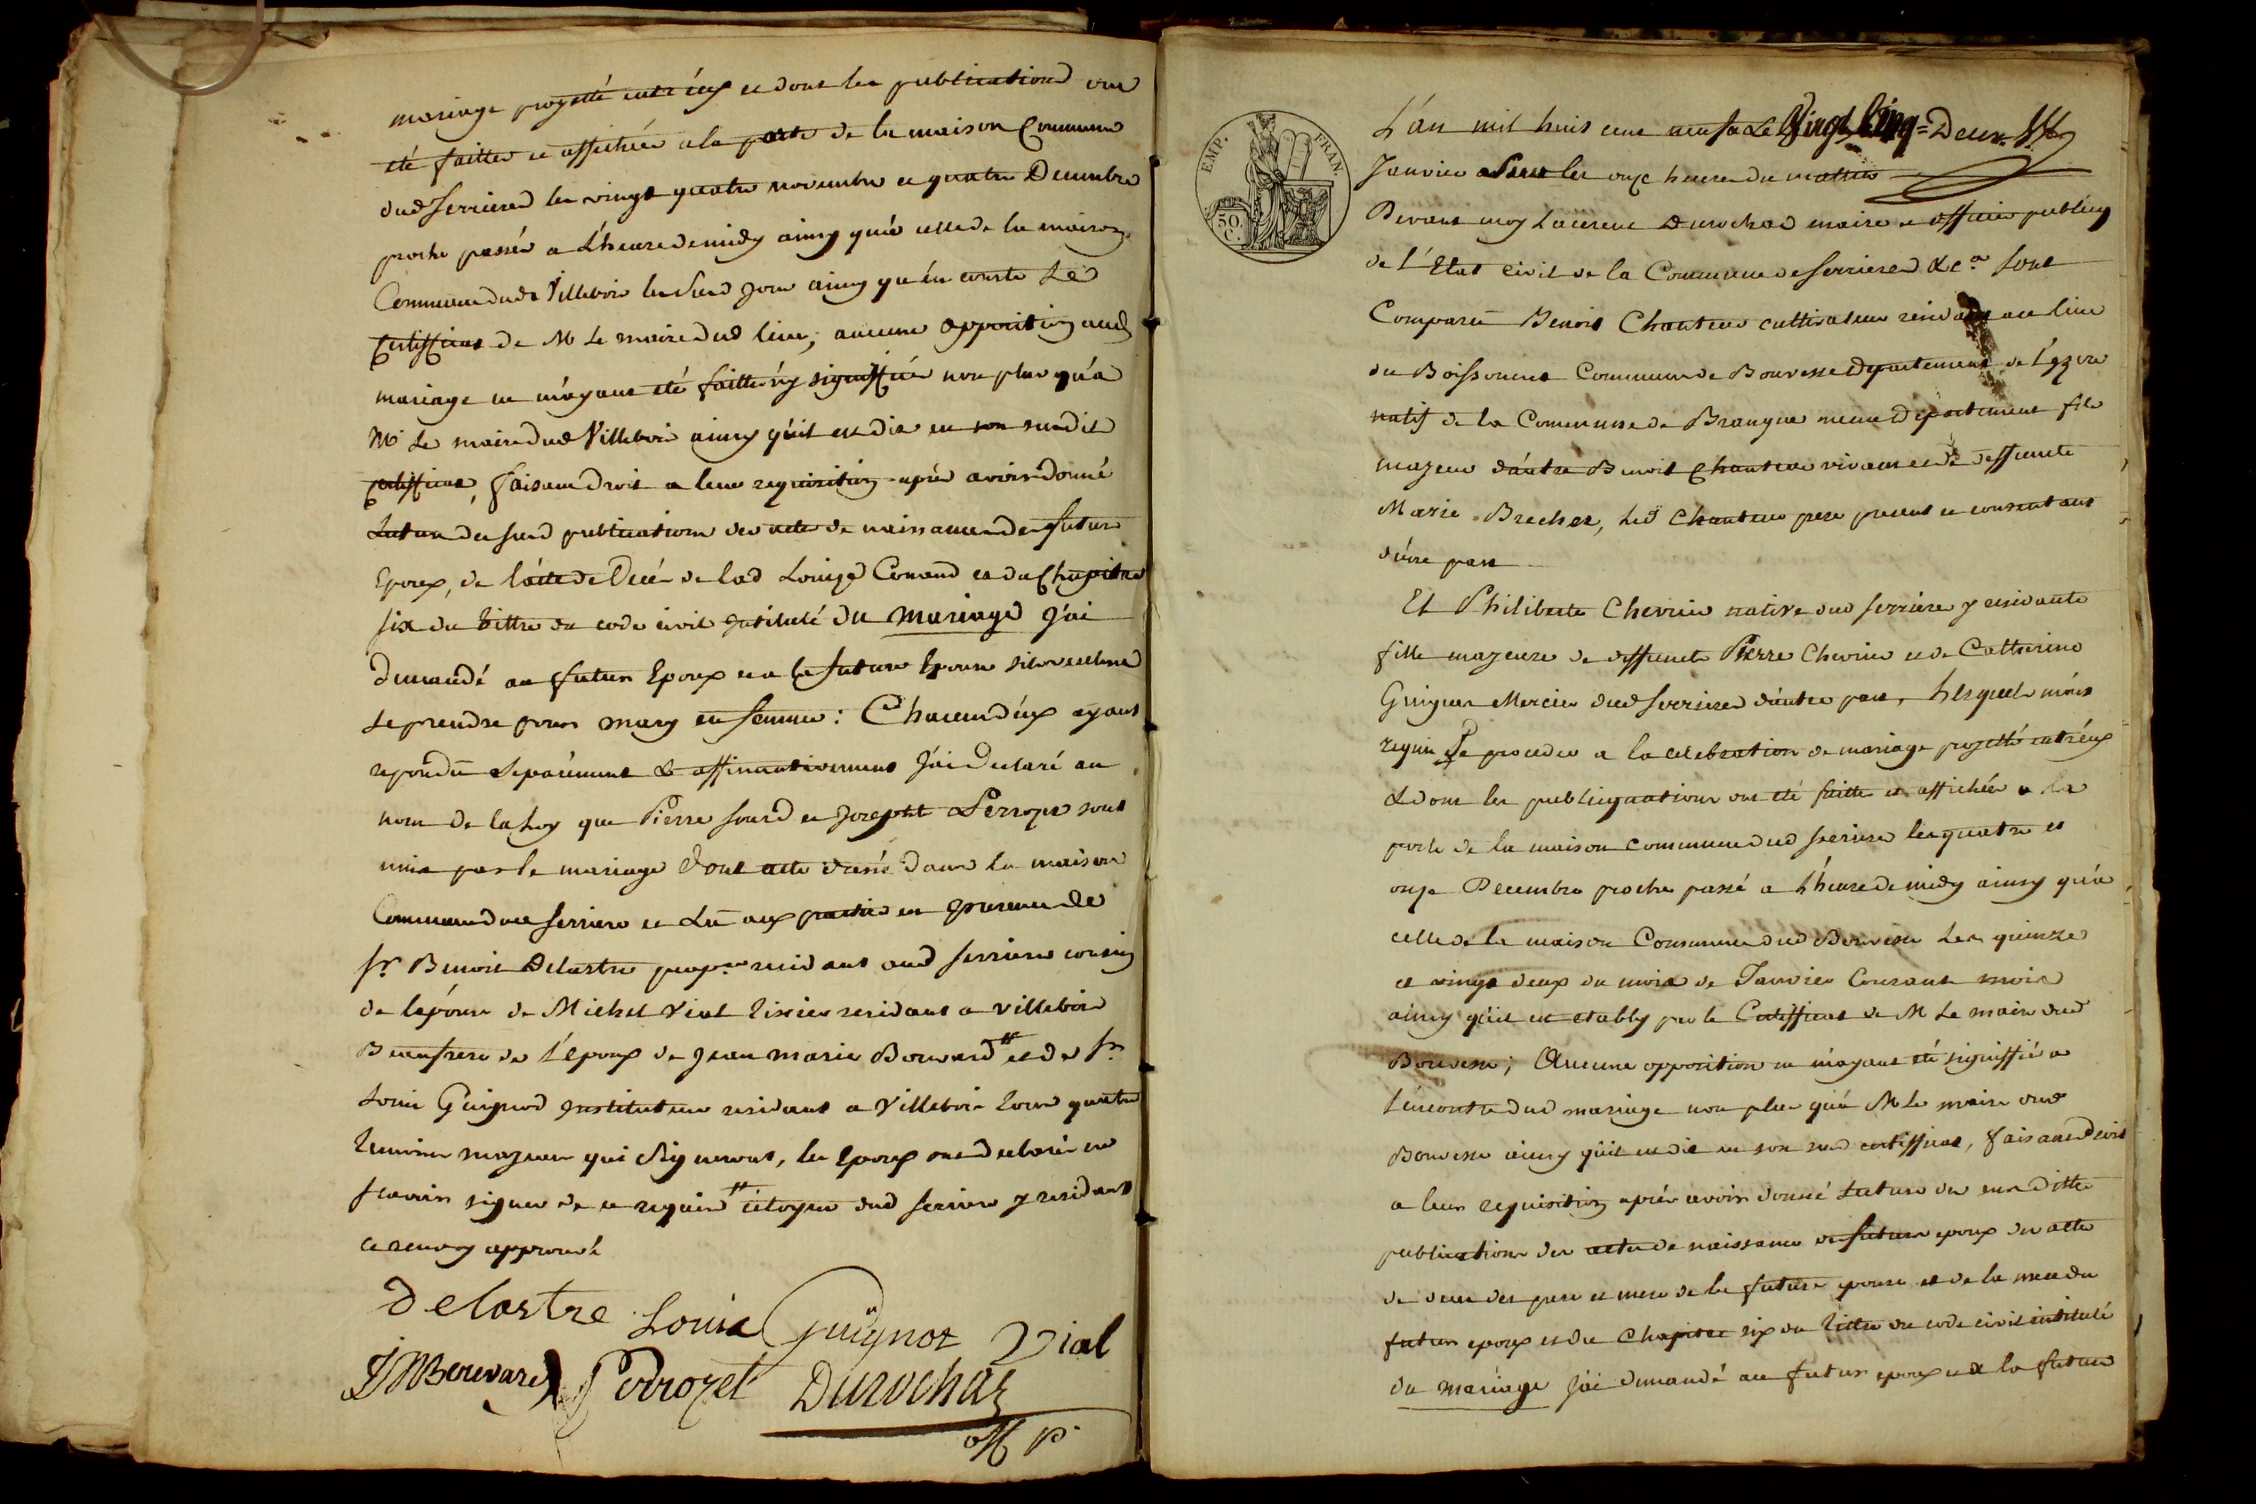 mariage projetté entr'eux et dont les publications ont
été faittes et affichées a la porte de la maison Commune
dud Serrieres les vingt quatre novembre et quatre Decembre
proche passés a l'heure de midy ainsy qu'a celle de la maison
Commune dud Villebois les sud jour ainsy qu'en conste le
Certifficat de M le maire dud lieu; aucune opposition aud
mariage ne m'ayant été faitte ny signiffiée non plus qu'a
Mr Le maire dud Villebois ainsy qu'il est dit en son susdit
certifficat, faisant droit a leur requisition après avoir donné
Lecture des sud publications des actes de naissance des futurs
Epoux, de l'acte de Décés de lad Louise Conand et du Chapitre
six du tittre du code civil intitulé du Mariage J'ai
demandé au futur Epoux et a la future Epouse s'ils veulent
se prendre pour mary et femme: Chacun d'eux ayant
repondu separément & affirmativement J'ai declaré au
nom de la Loy que Pierre Sourd et Josepht Perrozet sont
unis par le mariage dont acte dressé dans la maison
Commune dud Serriere et Lu aux parties en presence de
Sr Benoit Delastre propre residant aud Serrieres cousin
de lepouse de Michel Vial residant a Villebois
Beaufrere de l'Epoux de Jean marie Bouvard # et de Sr
Louis Guignod Instituteur residant a Villebois tous quatre
temoins majeurs qui signeront, les Epoux ont declaré ne
scavoir signer de ce requis # citoyen dud Serriere y residant
ce renvoy approuvé
Delastre Louis Guignot Vial
JMBouvard Perrozet Durochat
M P
EMP. FRAN.
50. C.
L'an mil huit cent neuf & Le Vingt Cinq = Deux
Janvier sur les onze heures du matin
Devant moy Laurent Durochat maire et officier public
de l'Etat civil de la Commune de Serrieres &ca sont
Comparu Benoit Chanteur cultivateur residant au lieu
du Boissonnet Commune de Bouvesse departement de l'Izere
natif de la Commune de Brangue meme département fils
majeur d'autre Benoit Chanteur vivant et de deffuncte
Marie Brechet, led Chanteur pere present et consentant
d'une part
Et Philiberte Chevrier native dud Serriere y residante
fille majeure de deffunct Pierre Chevrier et de Catherine
Guignes Mercier dud Serrieres d'autre part, lesquels m'ont
requis de proceder a la celebration de mariage projetté entr'eux
& dont les publiquations ont été faittes et affichées a la
porte de la maison commune dud Serriere les quatre et
onze Decembre proche passé a l'heure de midy ainsy qu'a
celle de la maison Commune dud Bouvesse Les quinze
et vingt deux du mois de Janvier Courant mois
ainsy qu'il est etably par le Certifficat de M Le maire dud
Bouvesse; Aucune opposition ne m'ayant été signiffié a
l'encontre dud mariage non plus qu'a M Le maire dud
Bouvesse ainsy qu'il est dit en son sud certifficat, faisant droit
a leur requisition après avoir donné Lecture des susdittes
publications des actes de naissance de futurs epoux des actes
de deces des pere et mere de la future epouse et de la mere du
futur epoux et du Chapitre six du tittre du code civil intitulé
du mariage J'ai demandé au futur epoux et a la future